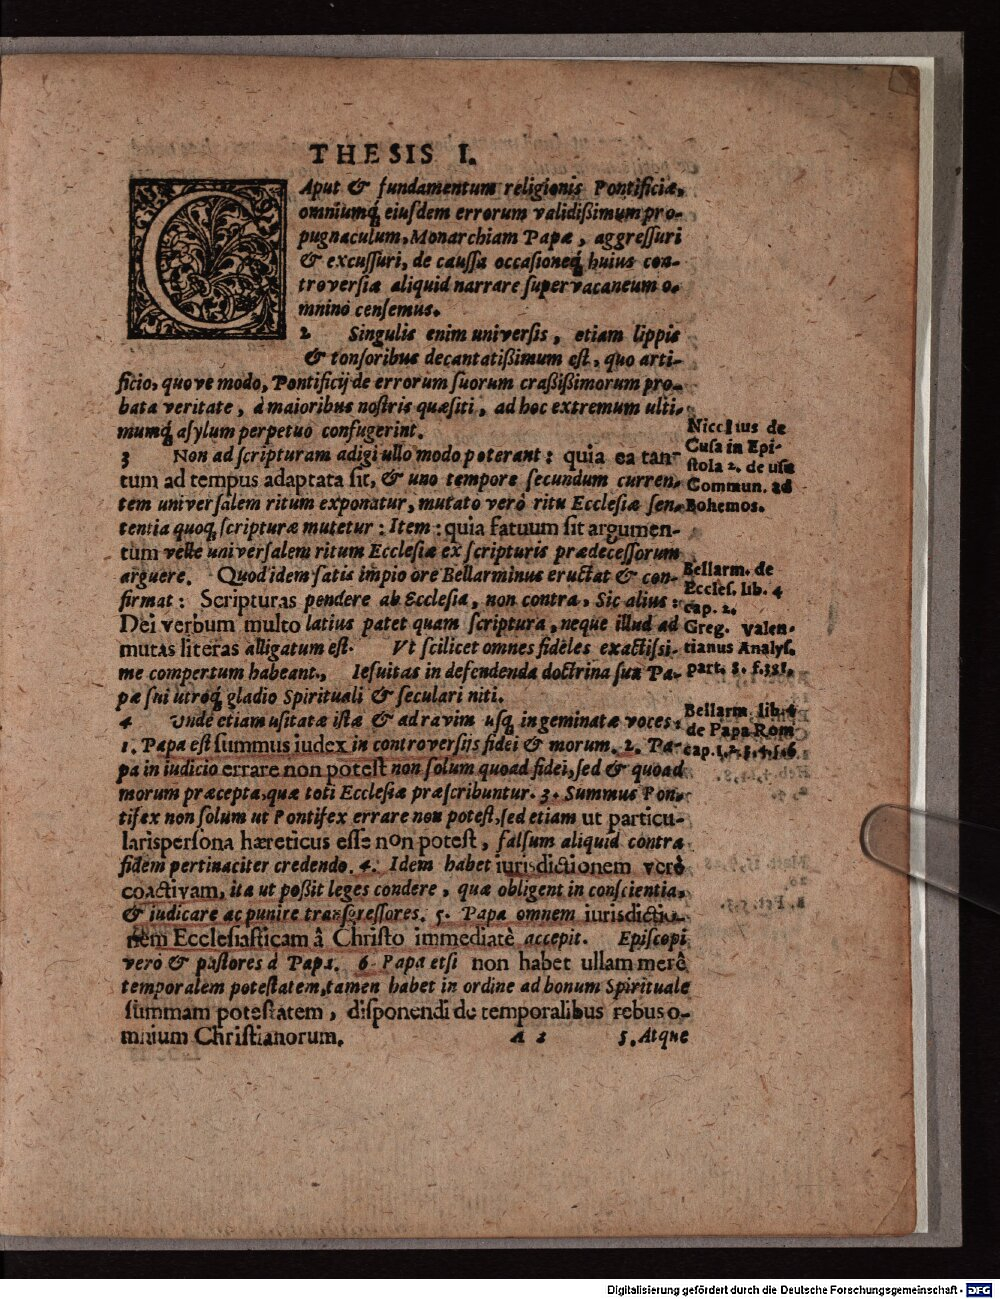 THESIS I.
CAput & fundamentum religionis Pontificiæ,
omniumq́ eiuſdem errorum validißimum pro-
pugnaculum, Monarchiam Papæ, aggreſſuri
& excuſſuri, de cauſſa occaſioneq́ huius con-
troverſiæ aliquid narrare ſupervacaneum o-
mnino cenſemus.
2 Singulis enim univerſis, etiam lippis
& tonſoribus decantatißimum eſt, quo arti-
ficio, quove modo, Pontificij de errorum ſuorum craßißimorum pro-
bata veritate, à maioribus noſtris quæſiti, ad hoc extremum ulti-
mumq́ aſylum perpetuò confugerint.
3 Non ad ſcripturam adigi ullo modo poterant: quia ea tan-
tum ad tempus adaptata ſit, & uno tempore ſecundum curren-
tem univerſalem ritum exponatur, mutato verò ritu Eccleſiæ ſen-
tentia quoq, ſcripturæ mutetur: Item: quia fatuum ſit argumen-
tum velle univerſalem ritum Eccleſiæ ex ſcripturis prædeceſſorum
arguere. Quod idem ſatis impio ore Bellarminus eructat & con-
firmat: Scripturas pendere ab Eccleſia, non contra, Sic alius:
Dei verbum multo latius patet quam ſcriptura, neque illud ad
mutas literas alligatum eſt. Vt ſcilicet omnes fidêles exactiſſi-
me compertum habeant, Ieſuitas in defendenda doctrina ſua Pa-
pæ ſui utroq, gladio Spirituali & ſeculari niti.
4 Unde etiam uſitatæ iſtæ & ad ravim uſq, ingeminatæ voces:
1. Papa eſt ſummus iudex in controverſijs fidei & morum. 2. Pa-
pa in iudicio errare non poteſt non ſolum quoad fidei, ſed & quoad
morum præcepta, quæ toti Eccleſiæ præſcribuntur. 3. Summus Pon-
tifex non ſolum ut Pontifex errare non poteſt, ſed etiam ut particu-
laris perſona hæreticus eſſe non poteſt, falſum aliquid contra
fidem pertinaciter credendo. 4. Idem habet iurisdictionem verè
coactivam, ita ut poßit leges condere, quæ obligent in conſcientia,
& iudicare ac punire tranſgreſſores. 5. Papa omnem iurisdictio-
nem Eccleſiaſticam â Chriſto immediatè accepit. Epiſcopi
verò & paſtores à Papa. 6. Papa etſi non habet ullam merè
temporalem poteſtatem, tamen habet in ordine ad bonum Spirituale
ſummam poteſtatem, diſponendi de temporalibus rebus o-
mnium Chriſtianorum.
A 2 5. Atque
Nicolaus de
Cuſa in Epi-
ſtola 2. de uſu
Commun. ad
Bohemos.
Bellarm. de
Eccleſ. lib. 4
cap. 2.
Greg. Valen-
tianus Analyſ.
part. 8. f. 331.
Bellarm. lib. 4
de Papa Rom
cap. 1.2.3.4.5.6
Digitalisierung gefördert durch die Deutsche Forschungsgemeinschaft - DFG